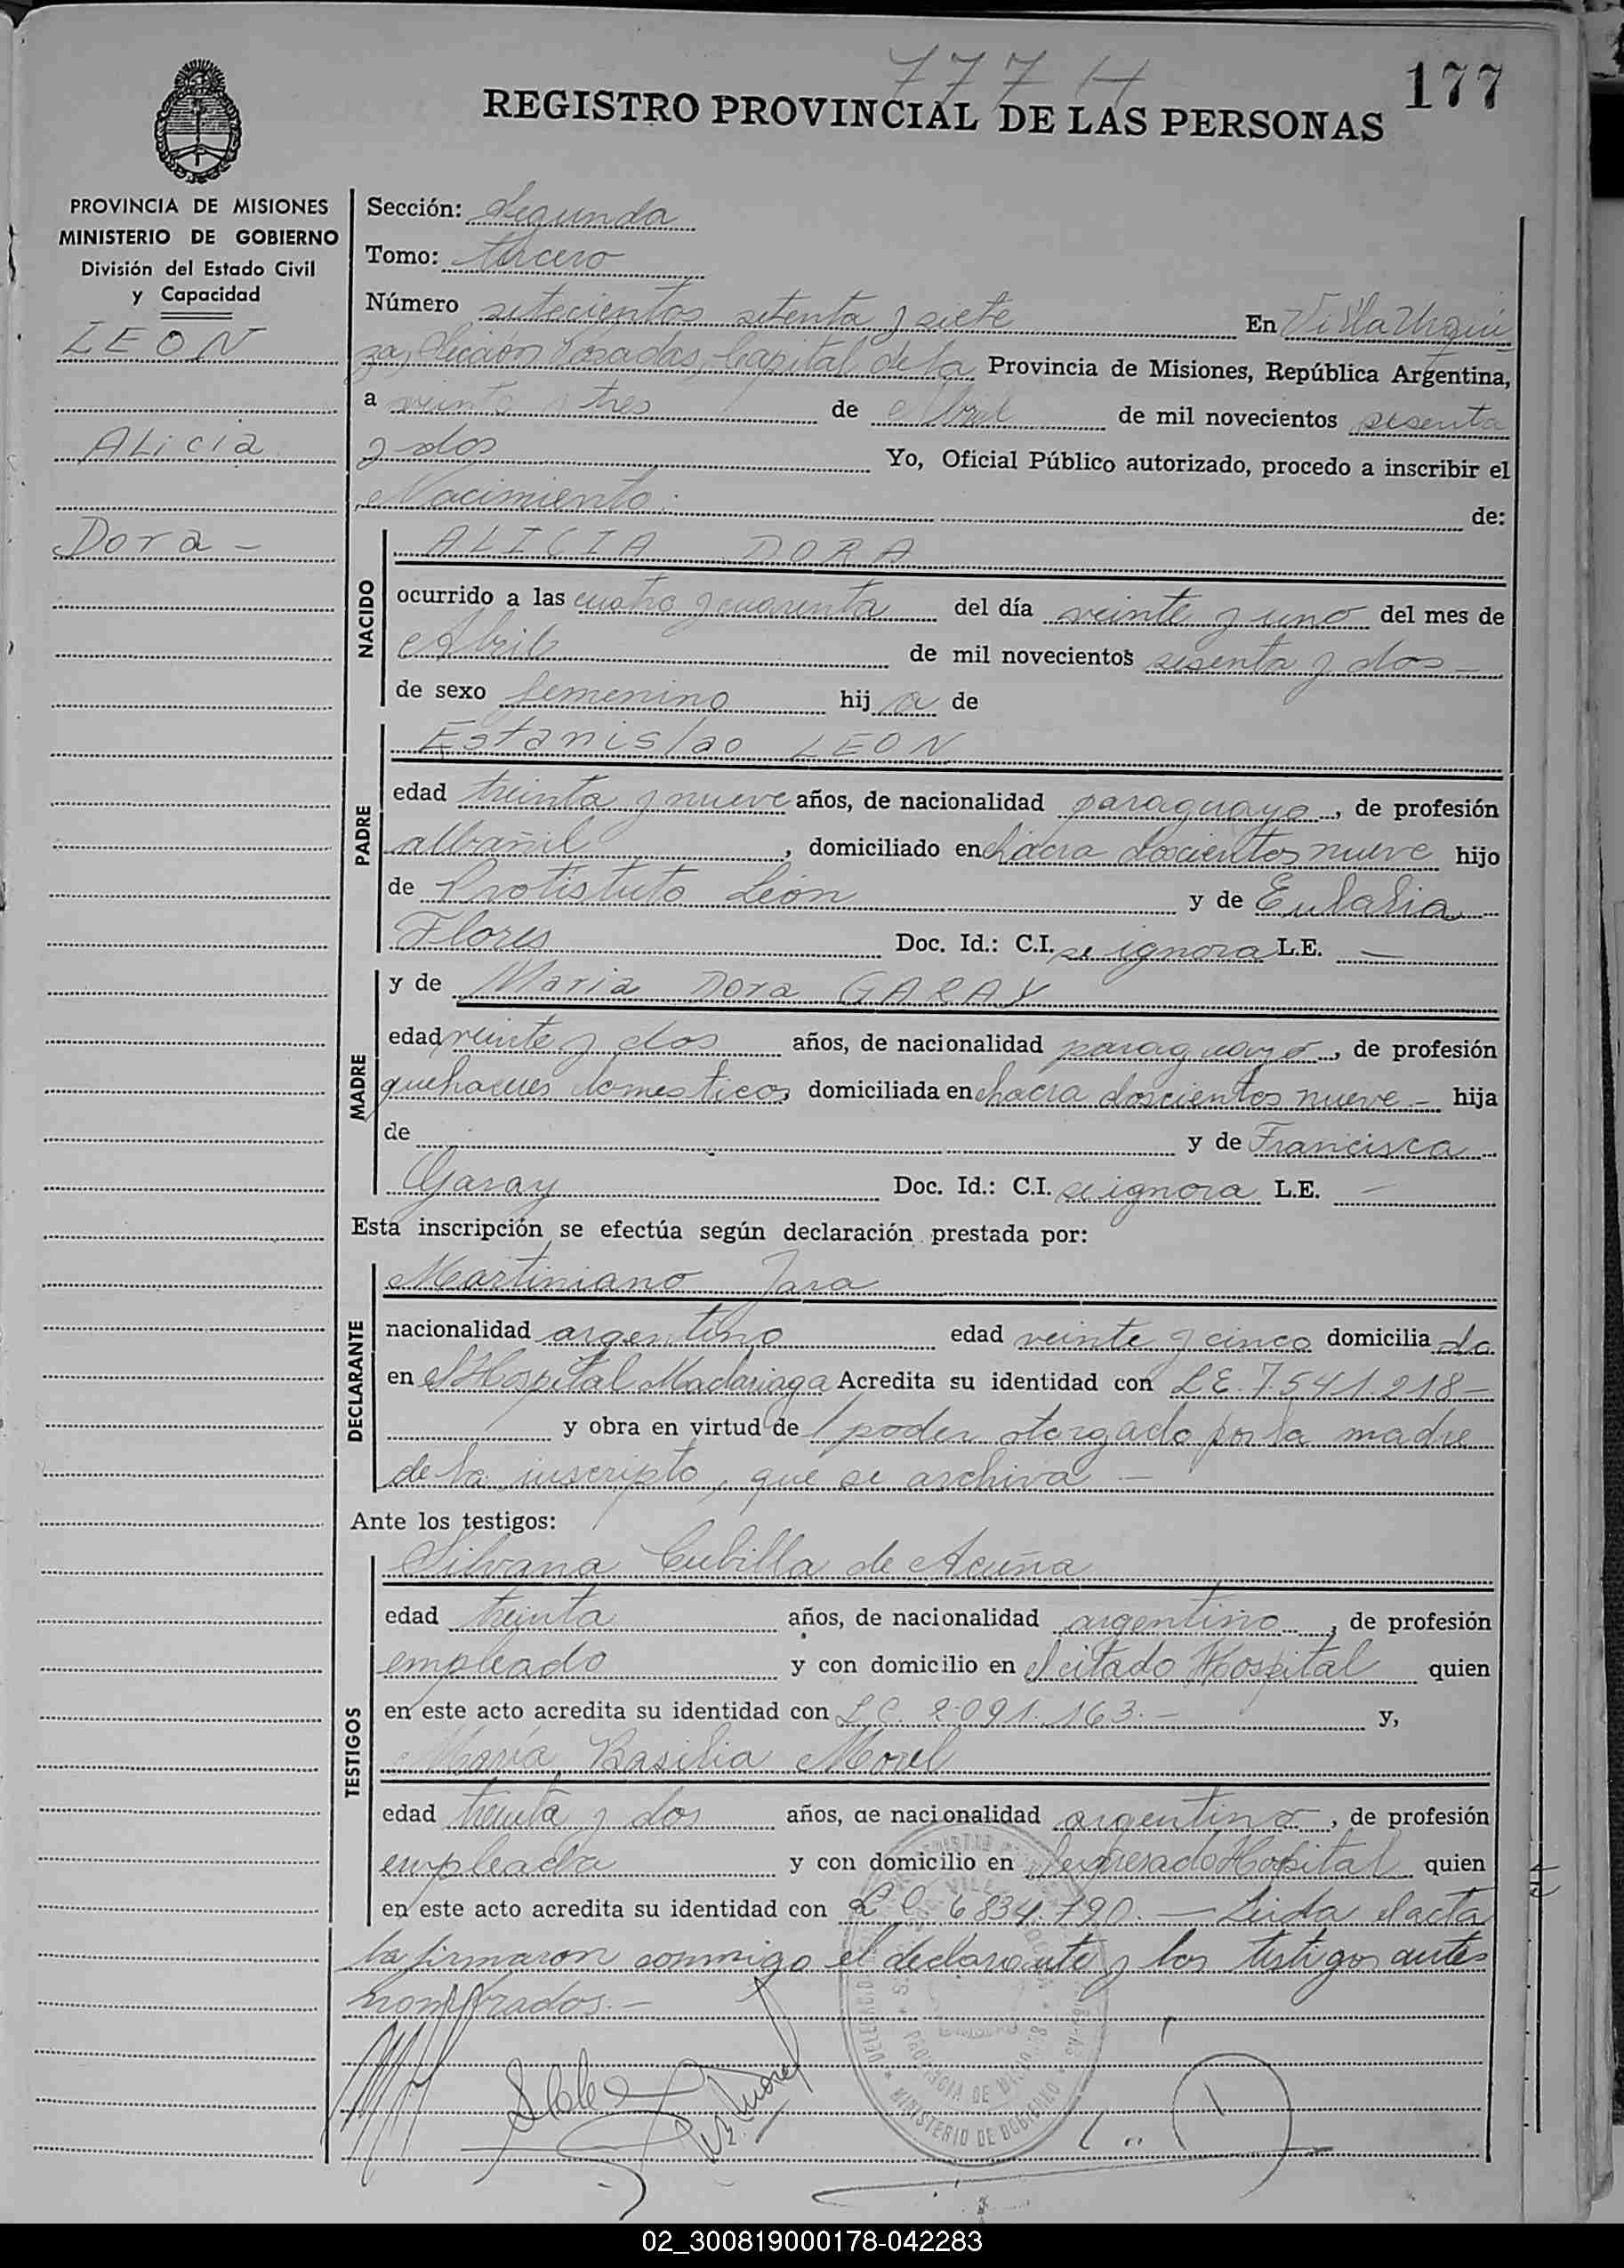 777 H
177
REGISTRO PROVINCIAL DE LAS PERSONAS
PROVINCIA DE MISIONES
MINISTERIO DE GOBIERNO
División del Estado Civil
y Capacidad
LEON
ALicia
Dora -
Sección: Segunda
Tomo: tercero
Número setecientos setenta y siete En Villa Urqui
za, Sección Posadas, Capital de la Provincia de Misiones, República Argentina,
a veinte y tres de Abril de mil novecientos sesenta
y dos Yo, Oficial Público autorizado, procedo a inscribir el
Nacimiento. de:
NACIDO
ALICIA DORA
ocurrido a las cuatro y cuarenta del día veinte y uno del mes de
Abril de mil novecientos sesenta y dos -
de sexo femenino hij a de
PADRE
Estanislao LEON
edad treinta y nueve años, de nacionalidad paraguayo, de profesión
albañil, domiciliado en chacra doscientos nueve hijo
de León y de Eulalia
Flores Doc. Id.: C.I. se ignora L.E. —
MADRE
y de Maria Dora GARAY
edad veinte y dos años, de nacionalidad paraguayo, de profesión
quehaceres domesticos, domiciliada en chacra doscientos nueve - hija
de y de Francisca
Garay Doc. Id.: C.I. se ignora L.E. —
Esta inscripción se efectúa según declaración prestada por:
DECLARANTE
Martiniano Jara
nacionalidad argentino edad veinte y cinco domicilia do
en el Hospital Madariaga Acredita su identidad con L.E. 7.541.218 -
y obra en virtud de 1 poder otorgado por la madre
de la inscripto, que se archiva -
Ante los testigos:
TESTIGOS
Silvana Cubilla de Acuña
edad treinta años, de nacionalidad argentino, de profesión
empleado y con domicilio en el citado Hospital quien
en este acto acredita su identidad con L.C. 2.091.163. - y,
María Basilia Morel
edad treinta y dos años, de nacionalidad argentina, de profesión
empleada y con domicilio en el expresado Hospital quien
en este acto acredita su identidad con L C 6834.790. — Leida el acta
la firmaron conmigo el declarante y los testigos antes
nombrados. -
Morel
MINISTERIO DE GOBIERNO
02_300819000178-042283